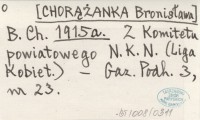 o [CHORĄŻANKA Bronisława]
B. Ch. 1915a. Z Komitetu
powiatowego N.K.N. (Liga
Kobiet.) – Gaz. Podh. 3,
nr 23.